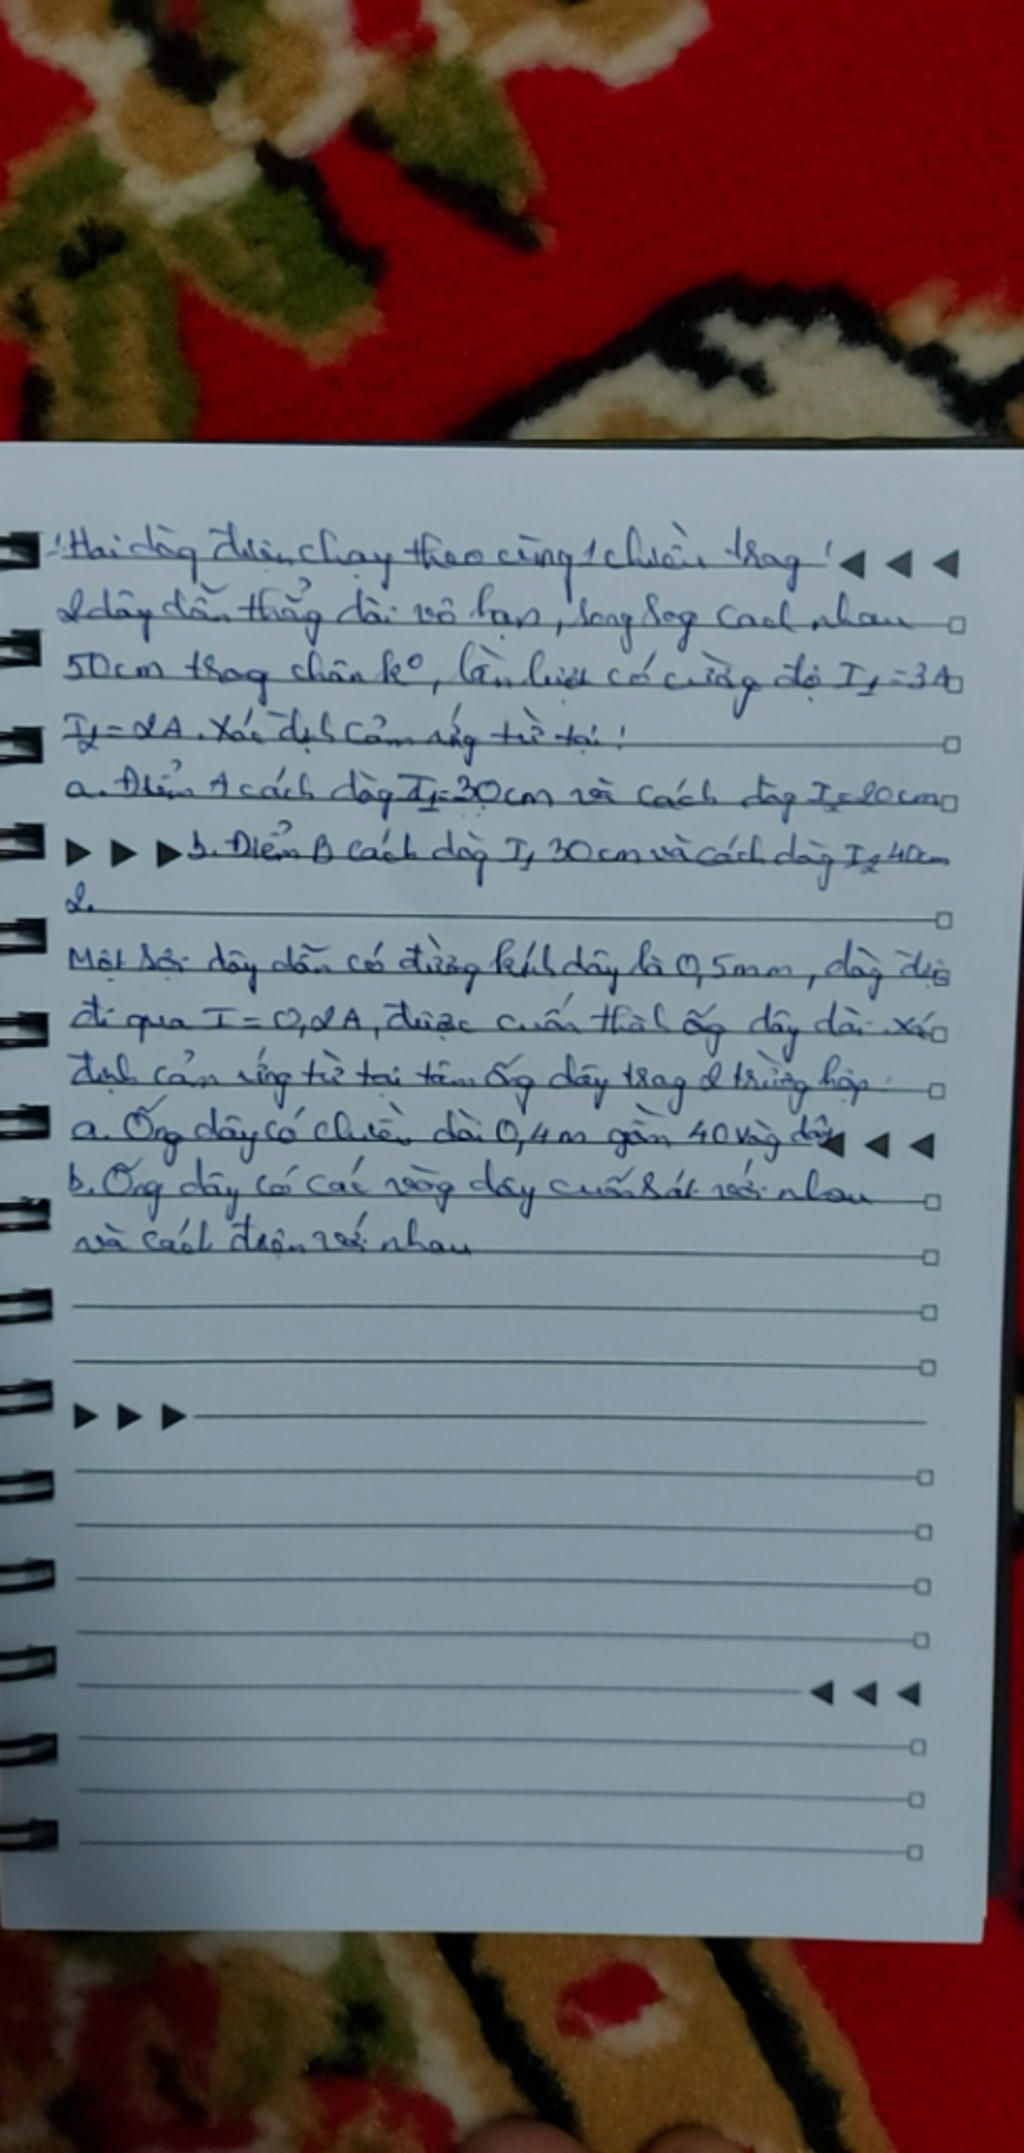 1. Hai dòg điện chạy theo cùng 1 chiều trag
2 dây dẫn thẳg dài vô hạn, song sog cách nhau
50cm trag chân k°, lần lượt có cườg độ I1 = 3A
I2 = 2A. Xác địh cảm ứg từ tại!
a. Điểm A cách dòg I1 = 30 cm và cách dòg I2 = 20cm
b. Điểm B cách dòg I1 30cm và cách dòg I2 40cm
2.
Một sợi dây dẫn có đườg kíh dây là 0,5mm, dòg điệ
đi qua I = 0,2A, được cuốn thàh ốg dây dài. xác
địh cảm ứng từ tại tâm ốg dây trag 2 trườg hợp
a. Ốg dây có chiều dài 0,4m gồm 40 vòg dây
b. Ốg dây có các vòg dây cuốn sát với nhau
và cách điện với nhau